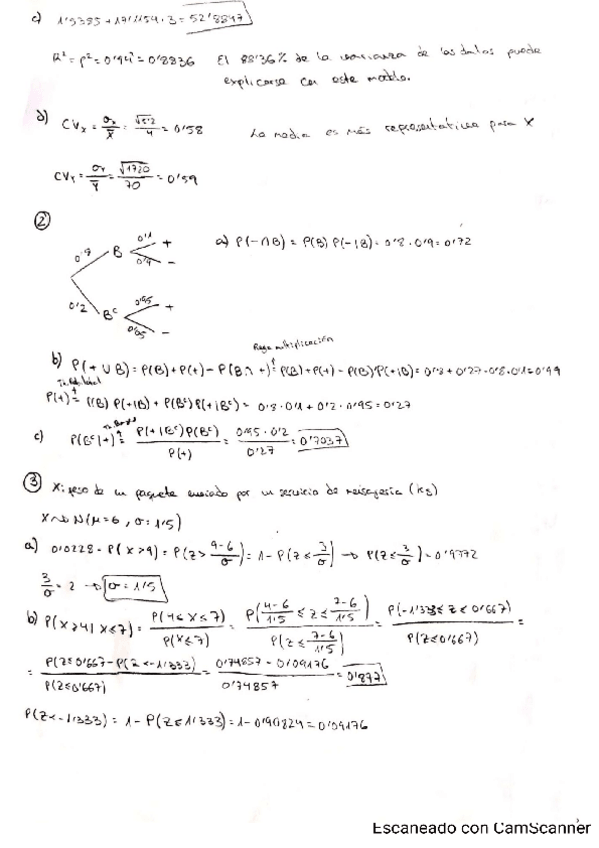 c) 1'5385 + 17'1154 · 3 = 52'8847
R² = ρ² = 0'94² = 0'8836 El 88'36% de la varianza de los datos puede
explicarse con este modelo.
d) CVx = σx/x̄ = /4 = 0'58 La media es más representativa para X
CVY = σY/Ȳ = √1720/70 = 0'59
②
0'8 B 0'1 +
0'9 −
0'2 Bᶜ 0'95 +
0'05 −
a) P(−∩B) = P(B) P(−|B) = 0'8 · 0'9 = 0'72
Regla multiplicación
b) P(+ ∪ B) = P(B) + P(+) − P(B ∩ +) = P(B) + P(+) − P(B) P(+|B) = 0'8 + 0'27 − 0'8 · 0'1 = 0'99
P(+) = P(B) P(+|B) + P(Bᶜ) P(+|Bᶜ) = 0'8 · 0'1 + 0'2 · 0'95 = 0'27
c) P(Bᶜ|+) = P(+|Bᶜ) P(Bᶜ) / P(+) = 0'95 · 0'2 / 0'27 = 0'7037
③ X: peso de un paquete enviado por un servicio de mensajería (kg)
X ~ N(μ = 6, σ = 1'5)
a) 0'0228 = P(X > 9) = P(Z > 9−6/σ) = 1 − P(Z ≤ 3/σ) → P(Z ≤ 3/σ) = 0'9772
3/σ = 2 → σ = 1'5
b) P(X > 4 | X ≤ 7) = P(4 ≤ X ≤ 7) / P(X ≤ 7) = P(4−6/1'5 ≤ Z ≤ 7−6/1'5) / P(Z ≤ 7−6/1'5) = P(−1'333 ≤ Z ≤ 0'667) / P(Z ≤ 0'667) =
= P(Z ≤ 0'667) − P(Z < −1'333) / P(Z ≤ 0'667) = 0'74857 − 0'09176 / 0'74857 = 0'877
P(Z < −1'333) = 1 − P(Z ≤ 1'333) = 1 − 0'90824 = 0'09176
Escaneado con CamScanner